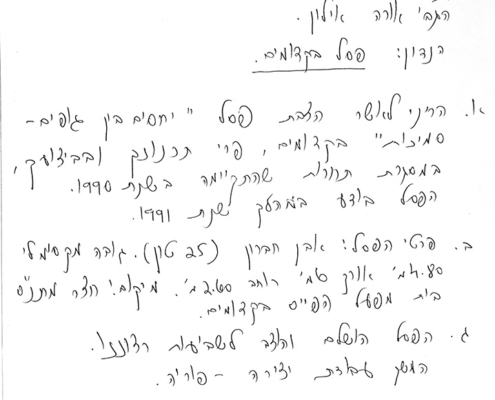 הגב' אורה אילון.
הנדון: פסל בקדומים.
א. הריני לאשר הצבת פסל "יחסים בין גופים-
סמיכות" בקדומים, פרי תכנונך ובביצועך,
במסגרת תחרות שהתקיימה בשנת 1990.
הפסל בוצע במהלך שנת 1991.
ב. פרטי הפסל: אבן חברון (25 טון). גובה מקסימלי
4.80מ' אורך 6מ' רוחב 2.60מ'. מיקום: חצר מתנ"ס
בית מפעל הפייס בקדומים.
ג. הפסל הושלם והוצב לשביעות רצוננו.
המשך עבודת יצירה - פוריה.